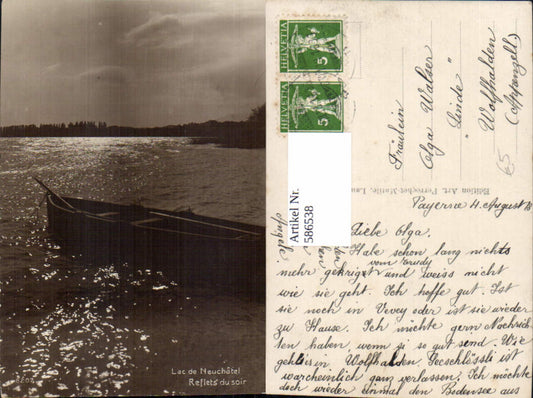 Lac de Neuchâtel
Reflets du soir
HELVETIA
5
HELVETIA
5
Artikel Nr.
586538
Fräulein
Olga Walser
"Linde"
Wolfhalden
(Appenzell)
65
Edition Art. Perrochet-Matile, Lau
Payerne 11. August
Liebe Olga.
Habe schon lang nichts
vom Trudy
mehr gekriegt und weiss nicht
wie sie geht. Ich hoffe gut. Ist
sie noch in Vevey oder ist sie wieder
zu Hause. Ich möchte gern Nachrich
ten haben, wenn so gut send. Wie
geht's in Wolfhalden. ist
warscheinlich ganz verlassen. Ich möchte
doch wieder einmal den Bodensee aus